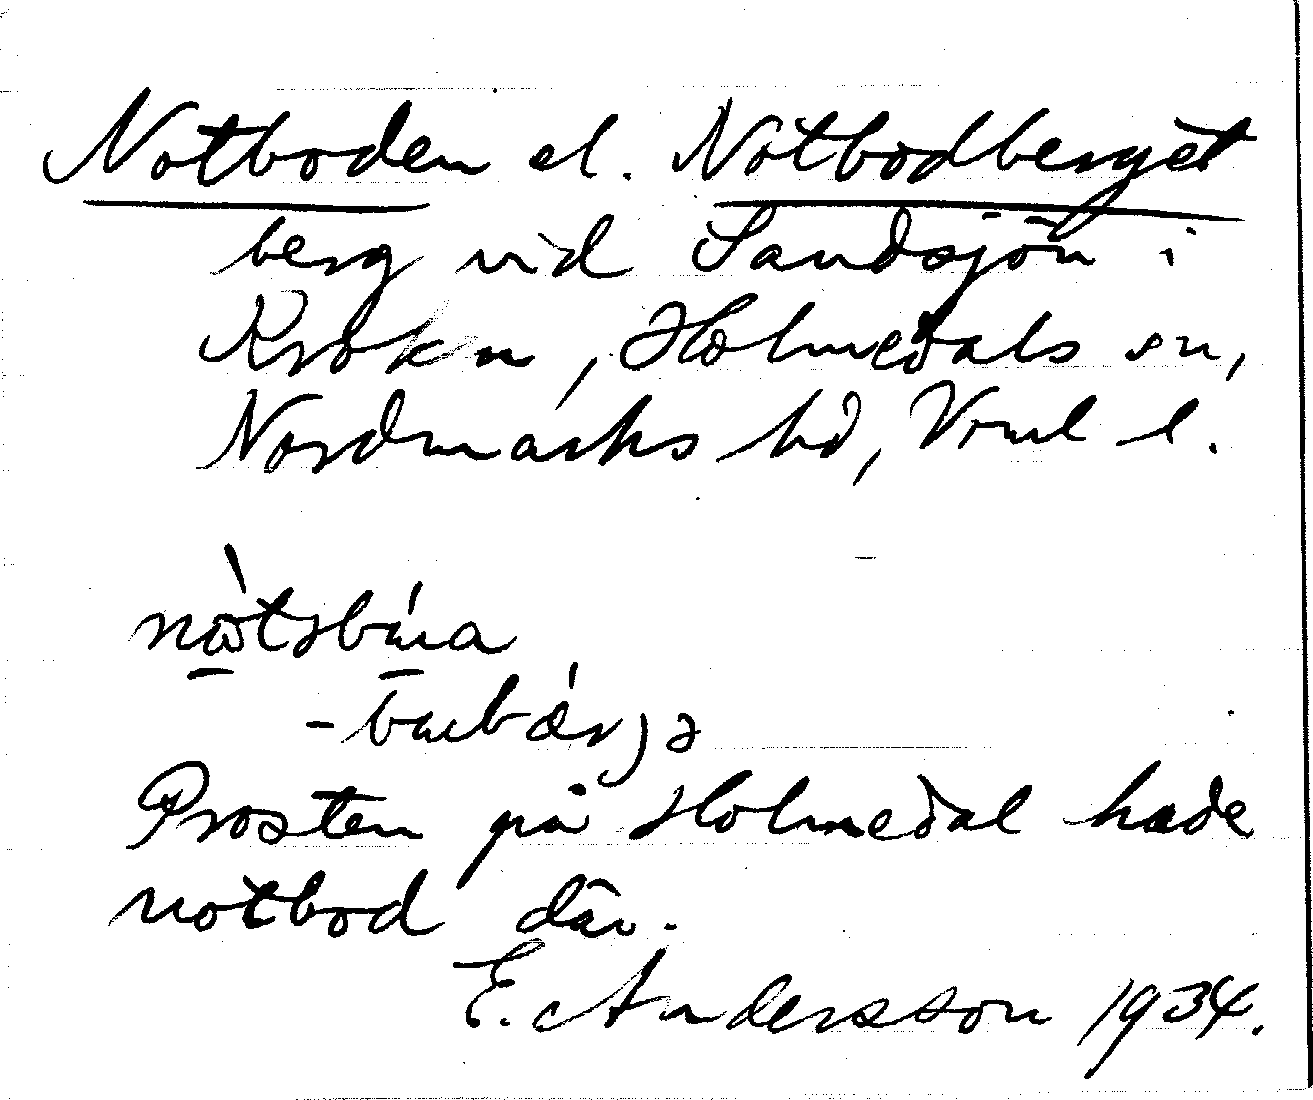 Notboden el. Notbodberget
berg vid Sandsjön i
Kroken, Holmedals sn,
Nordmarks hd, Vrml l.
Prosten på Holmedal hade
notbod där.
E. Andersson 1934.